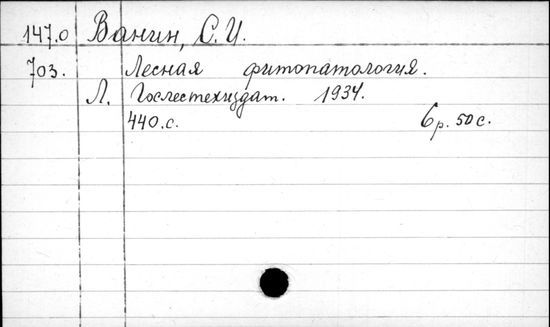 147.0 Ванин, С.И.
703. Лесная фитопатология.
Л. Гослестехиздат. 1934.
440.с. 6 р. 50 с.